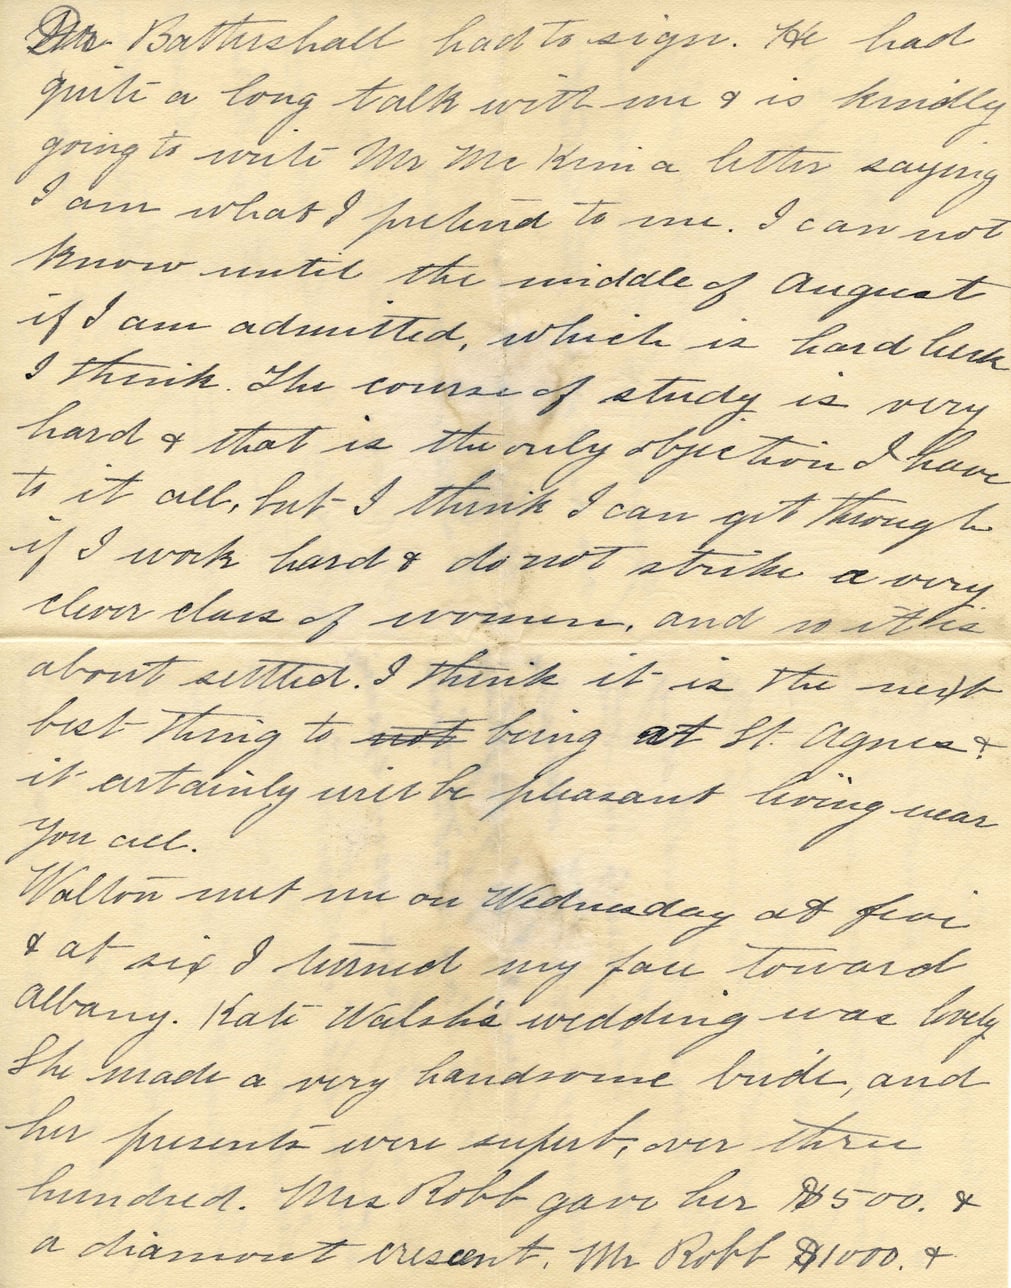 Dr. Battershall had to sign. He had
quite a long talk with me & is kindly
going to write Mr Mc Kim a letter saying
I am what I pretend to me. I can not
know until the middle of August
if I am admitted, which is hard luck
I think. The course of study is very
hard & that is the only objection I have
to it all, but I think I can get through
if I work hard & do not strike a very
clever class of women, and so it is
about settled. I think it is the next
best thing to not being at St. Agnes &
it certainly will be pleasant living near
you all.
Walton met me on Wednesday at five
& at six I turned my face toward
Albany. Kate Walsh's wedding was lovely
She made a very handsome bride, and
her presents were superb, over three
hundred. Mrs Robb gave her $500. &
a diamont crescent. Mr Robb $1000. &